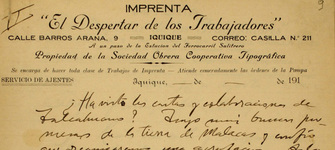 IMPRENTA
"El Despertar de los Trabajadores"
CALLE BARROS ARANA, 9 IQUIQUE CORREO: CASILLA N.º 211
A un paso de la Estacion del Ferrocarril Salitrero
Propiedad de la Sociedad Obrera Cooperativa Tipográfica
Se encarga de hacer toda clase de Trabajos de Imprenta - Atiende esmeradamente las órdenes de la Pampa
SERVICIO DE AJENTES Iquique, de de 191
¿Ha visto las cartas y celebraciones de
Talcahuano? Traigo muy buenas
de la tierra de y confio